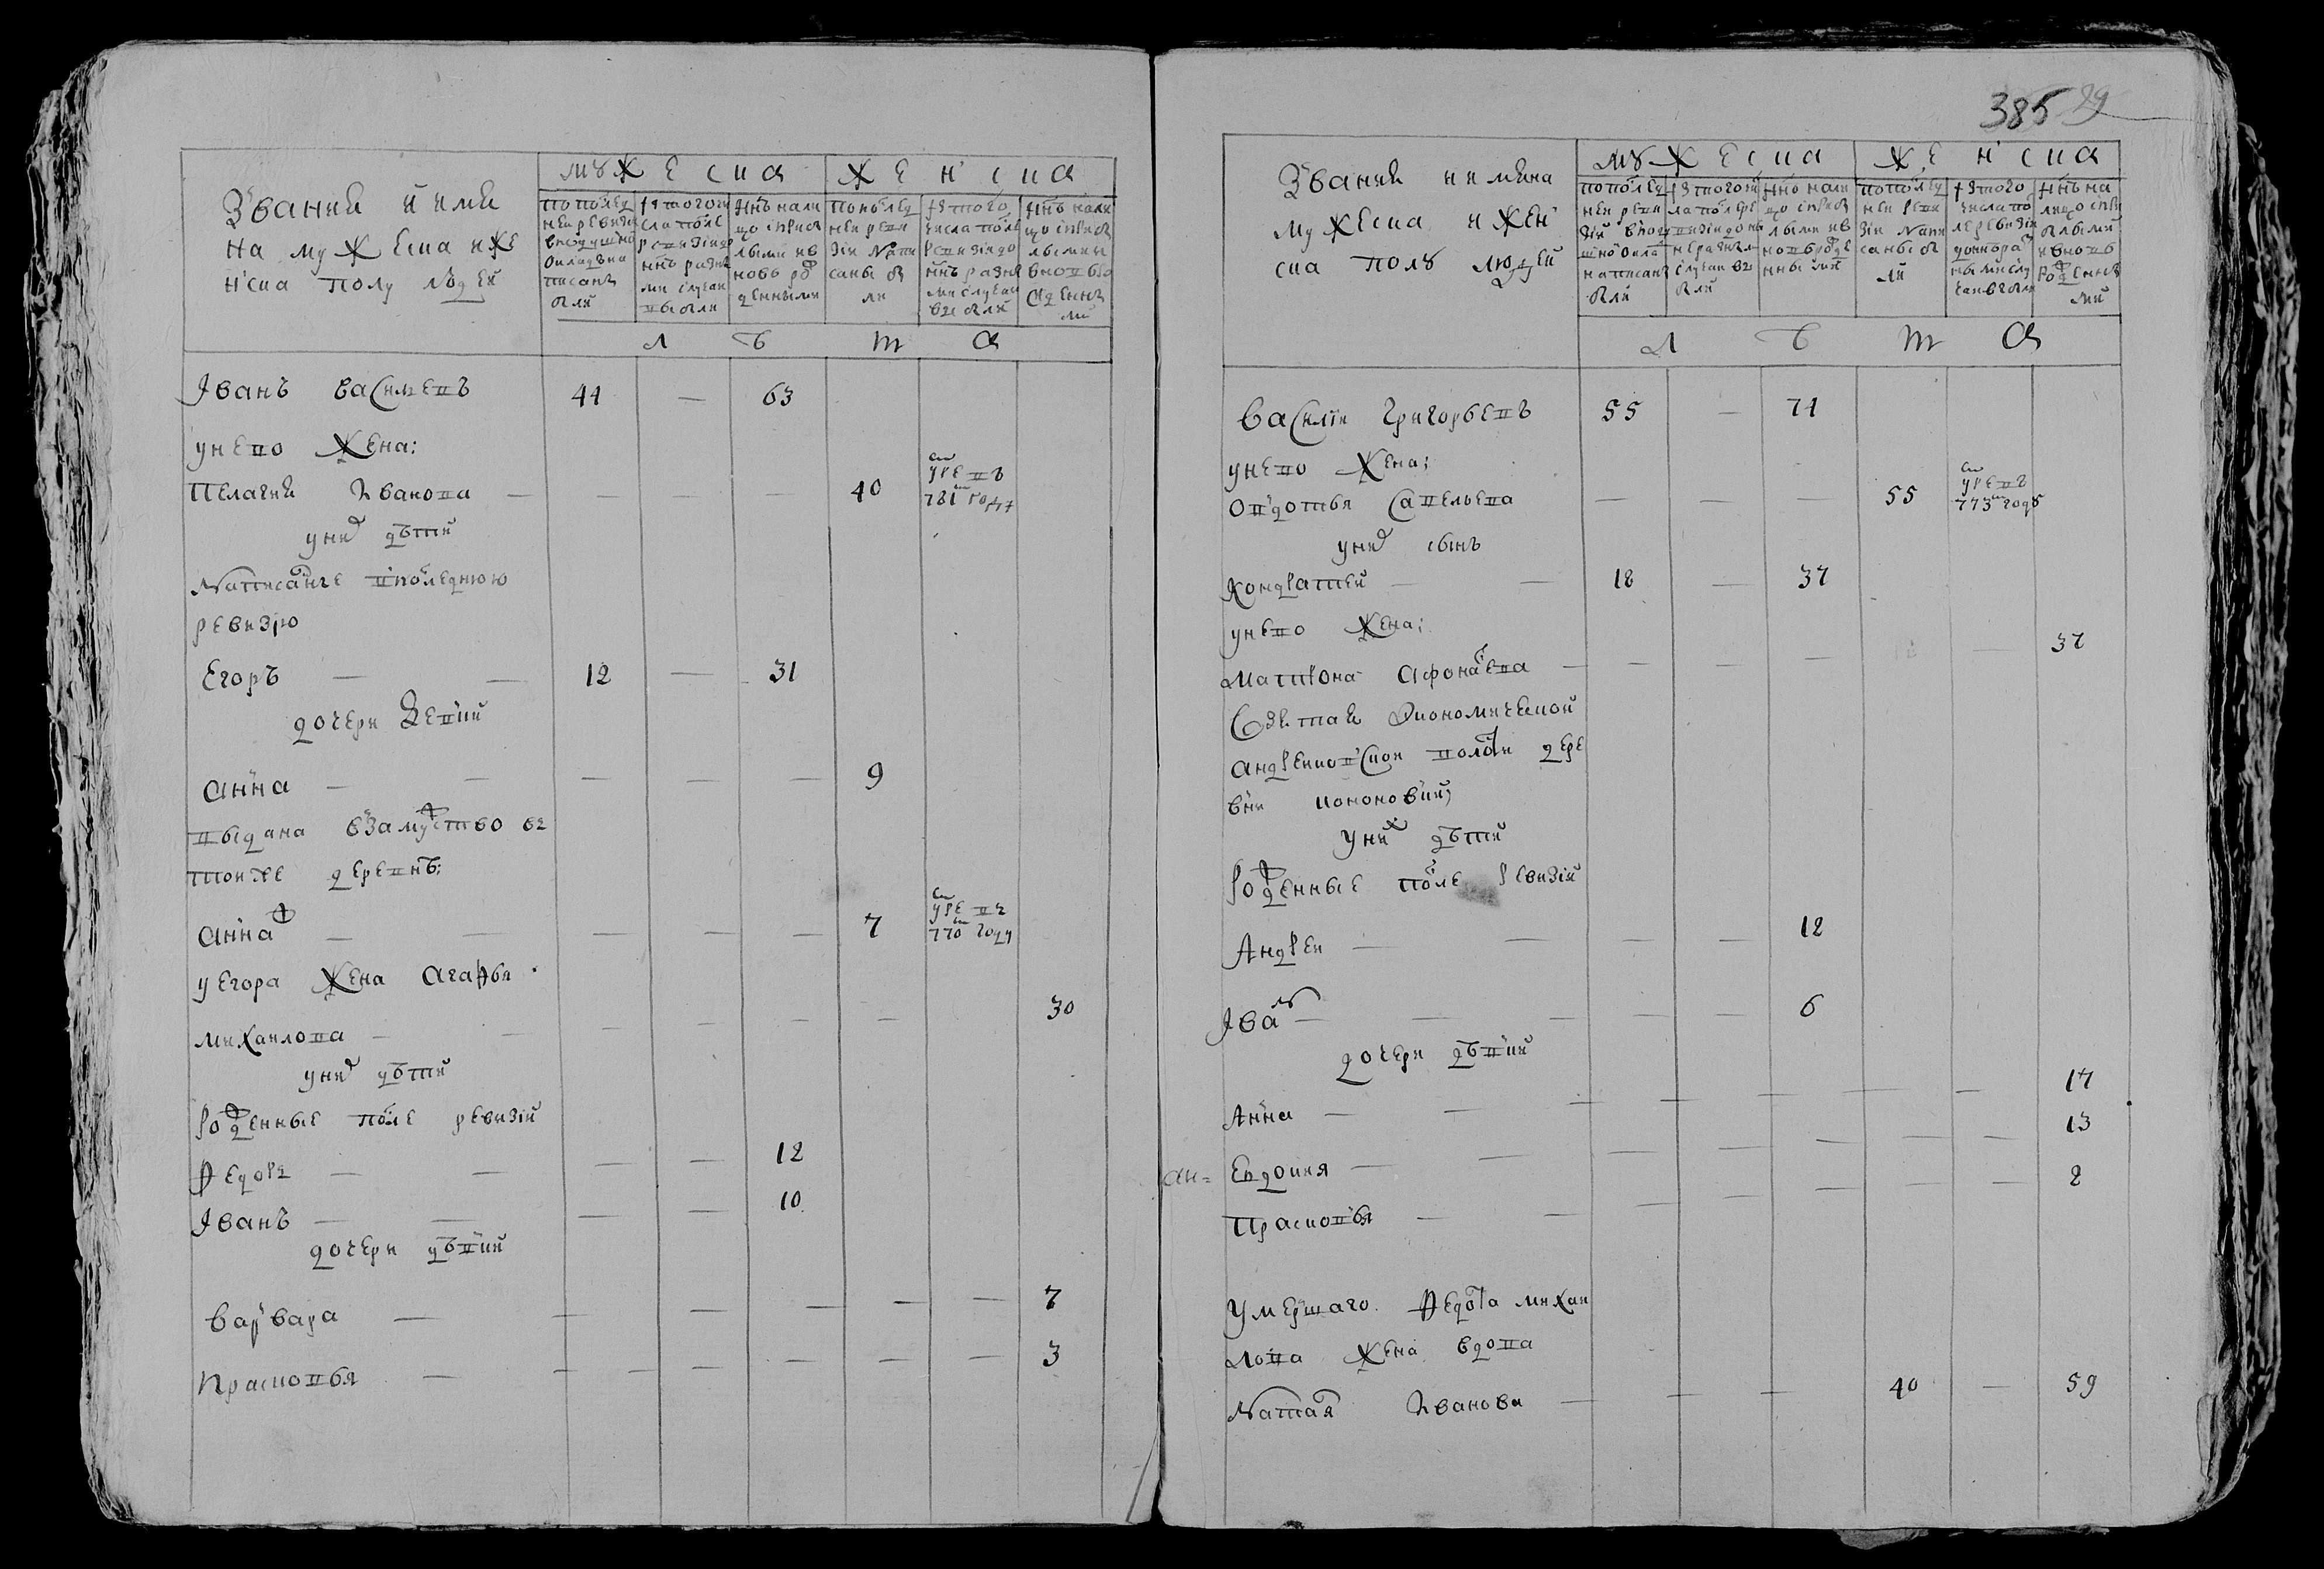 385 29
Званий ймян
на мужеска и же
нска полу людей
мужеска
женска
по послед
ней ревизи
в подушной
окладъ на
писанъ
были
из того чи
сла после
ревизии до
ннъ разны
ми случая
выбыли
ннъ нали
цо с прибы
лыми и в
новь ро
жденными
по послед
ней реви
зии напи
саны бы
ли
из того
числа после
ревизии до
ннъ разны
ми случаи
выбыли
ннъ нали
цо с прибы
лыми и
вновь ро
жденны
ми
лѣта
Иванъ Василевъ 44 — 63
у него жена:
Пелагия Иванова — — — — 40 умре в 781м году
у них дѣти
Написанные в последнюю
ревизию
Егоръ — — 12 — 31
дочери девки
Анна — — — — — 9
выдана в замужство въ
той же деревнѣ:
Анна ж — — — — — 7 умре въ 770м году
у Егора жена Агафья
Михайлова — — — — — — 30
у них дѣти
рожденные после ревизии
Федоръ — — — — 12
Иванъ — — — — 10
дочери дѣвки
Варвара — — — — — — 7
Прасковья — — — — — — — 3
Звании имяна
мужеска и жен
ска полу людей
мужеска
женска
по послед
ней реви
зии в поду
шной окла
написанъ
были
из того чис
ла после ре
визии до нъ
не разным
случаи вы
были
ннъ нали
цо с прибы
лыми и в
новь рожде
нными
по послед
ней реви
зии напи
саны бы
ли
из того
числа по
сле ревизии
до ннъ раз
ными слу
чаи выбыли
ннъ на
лицо с при
былыми
и вновь
рожденны
ми
лѣта
Василий Григорьевъ 55 — 74
у него жена;
Овдотья Савельева — — — 55 умре въ 773м году
у них сынъ
Кондратей — — 18 — 37
у него жена;
Матрона Афонасьева — — — — — 37
взята економической
Андреиковской волости дере
вни Кононовки;
у них дѣти
рожденные после ревизии
Андрей — — — — 12
Иванъ — — — — — 6
дочери дѣвки
Анна — — — — — — — 17
ан= Евдокия — — — — — — — 13
Прасковья — — — — — — — 2
умершаго Федота Михаи
лова жена вдова
Наталья Иванова — — — 40 — 59